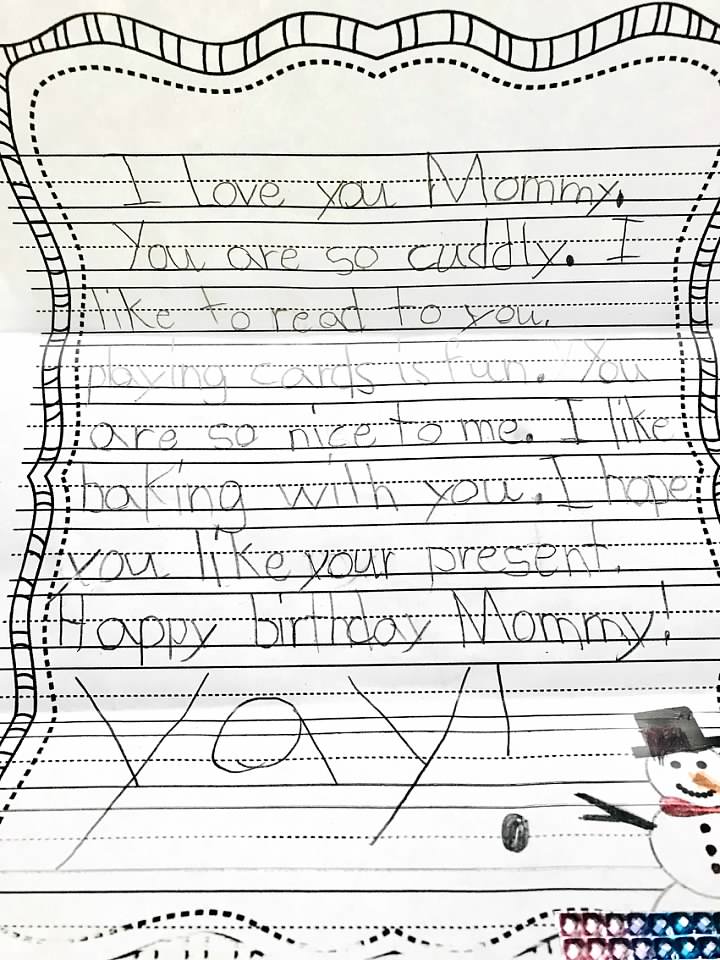 I love you Mommy.
You are so cuddly. I
like to read to you.
playing cards is fun. You
are so nice to me. I like
baking with you. I hope
you like your present.
Happy birthday Mommy!
yay!